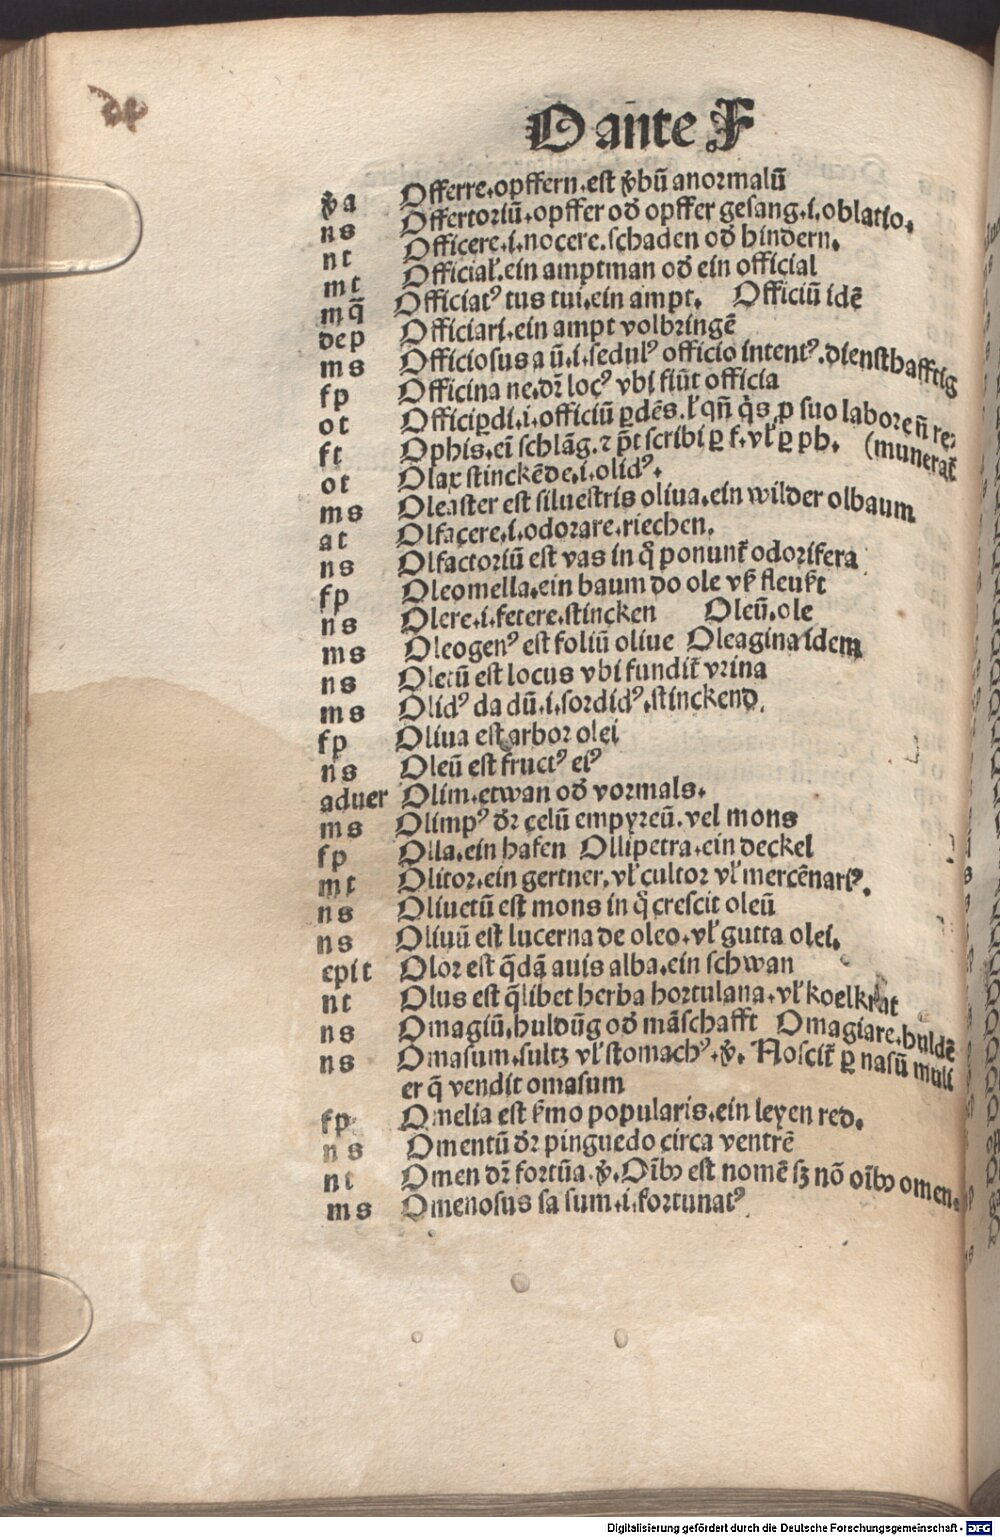 O an̄te F
v̄a Offerre.opffern.est v̄bū anormalū
ns Offertoriū.opffer od̄ opffer gesang.i.oblatio.
nt Officere.i.nocere.schaden od̄ hindern.
mt Officiaƚ.ein amptman od̄ ein official
mq̄ Officiatꝰ tus tui.ein ampt. Officiū idē
dep Officiari.ein ampt volbringē
ms Officiosus a ū.i.sedulꝰ officio intentꝰ.diensthafftig
fp Officina ne.dr̄ locꝰ vbi fiūt officia
ot Officiꝑdi.i.officiū ꝑdēs.ƚ qn̄ q̇s ꝓ suo labore n̄ re⸗
ft Ophis.ei̅ schlāg.⁊ p̄t scribi ꝑ f.vƚ ꝑ ph. (munerat̄
ot Olax stinckēde.i.olidꝰ.
ms Oleaster est siluestris oliua.ein wilder olbaum
at Olfacere.i.odorare.riechen.
ns Olfactoriū est vas in q̄ ponunt̄ odorifera
fp Oleomella.ein baum do ole vß fleuſt
ns Olere.i.fetere.stincken Oleū.ole
ms Oleogenꝰ est foliū oliue Oleagina idem
ns Oletū est locus vbi fundit̄ vrina
ms Olidꝰ da dū.i.sordidꝰ.stinckend.
fp Oliua est arbor olei
ns Oleū est fructꝰ eiꝰ
aduer Olim.etwan od̄ vormals.
ms Olimpꝰ dr̄ celū empyreū.vel mons
fp Olla.ein hafen Ollipetra.ein deckel
mt Olitor.ein gertner.vƚ cultor vƚ mercēnariꝰ.
ns Oliuetū est mons in q̄ crescit oleū
ns Oliuū est lucerna de oleo.vƚ gutta olei.
epit Olor est q̄dā auis alba.ein schwan
nt Olus est q̄libet herba hortulana.vƚ koelkrut
ns Omagiū.huldūg od̄ māschafft Omagiare.huldē
ns Omasum.sultz vƚ stomachꝰ.v̄. Noscit̄ ꝑ nasū muli
er q̄ vendit omasum
fp Omelia est s̄mo popularis.ein leyen red.
ns Omentū dr̄ pinguedo circa ventrē
nt Omen dr̄ fortūa.v̄.Oībꝰ est nomē sꝫ nō oībꝰ omen.
ms Omenosus sa sum.i.fortunatꝰ
Digitalisierung gefördert durch die Deutsche Forschungsgemeinschaft - DFG